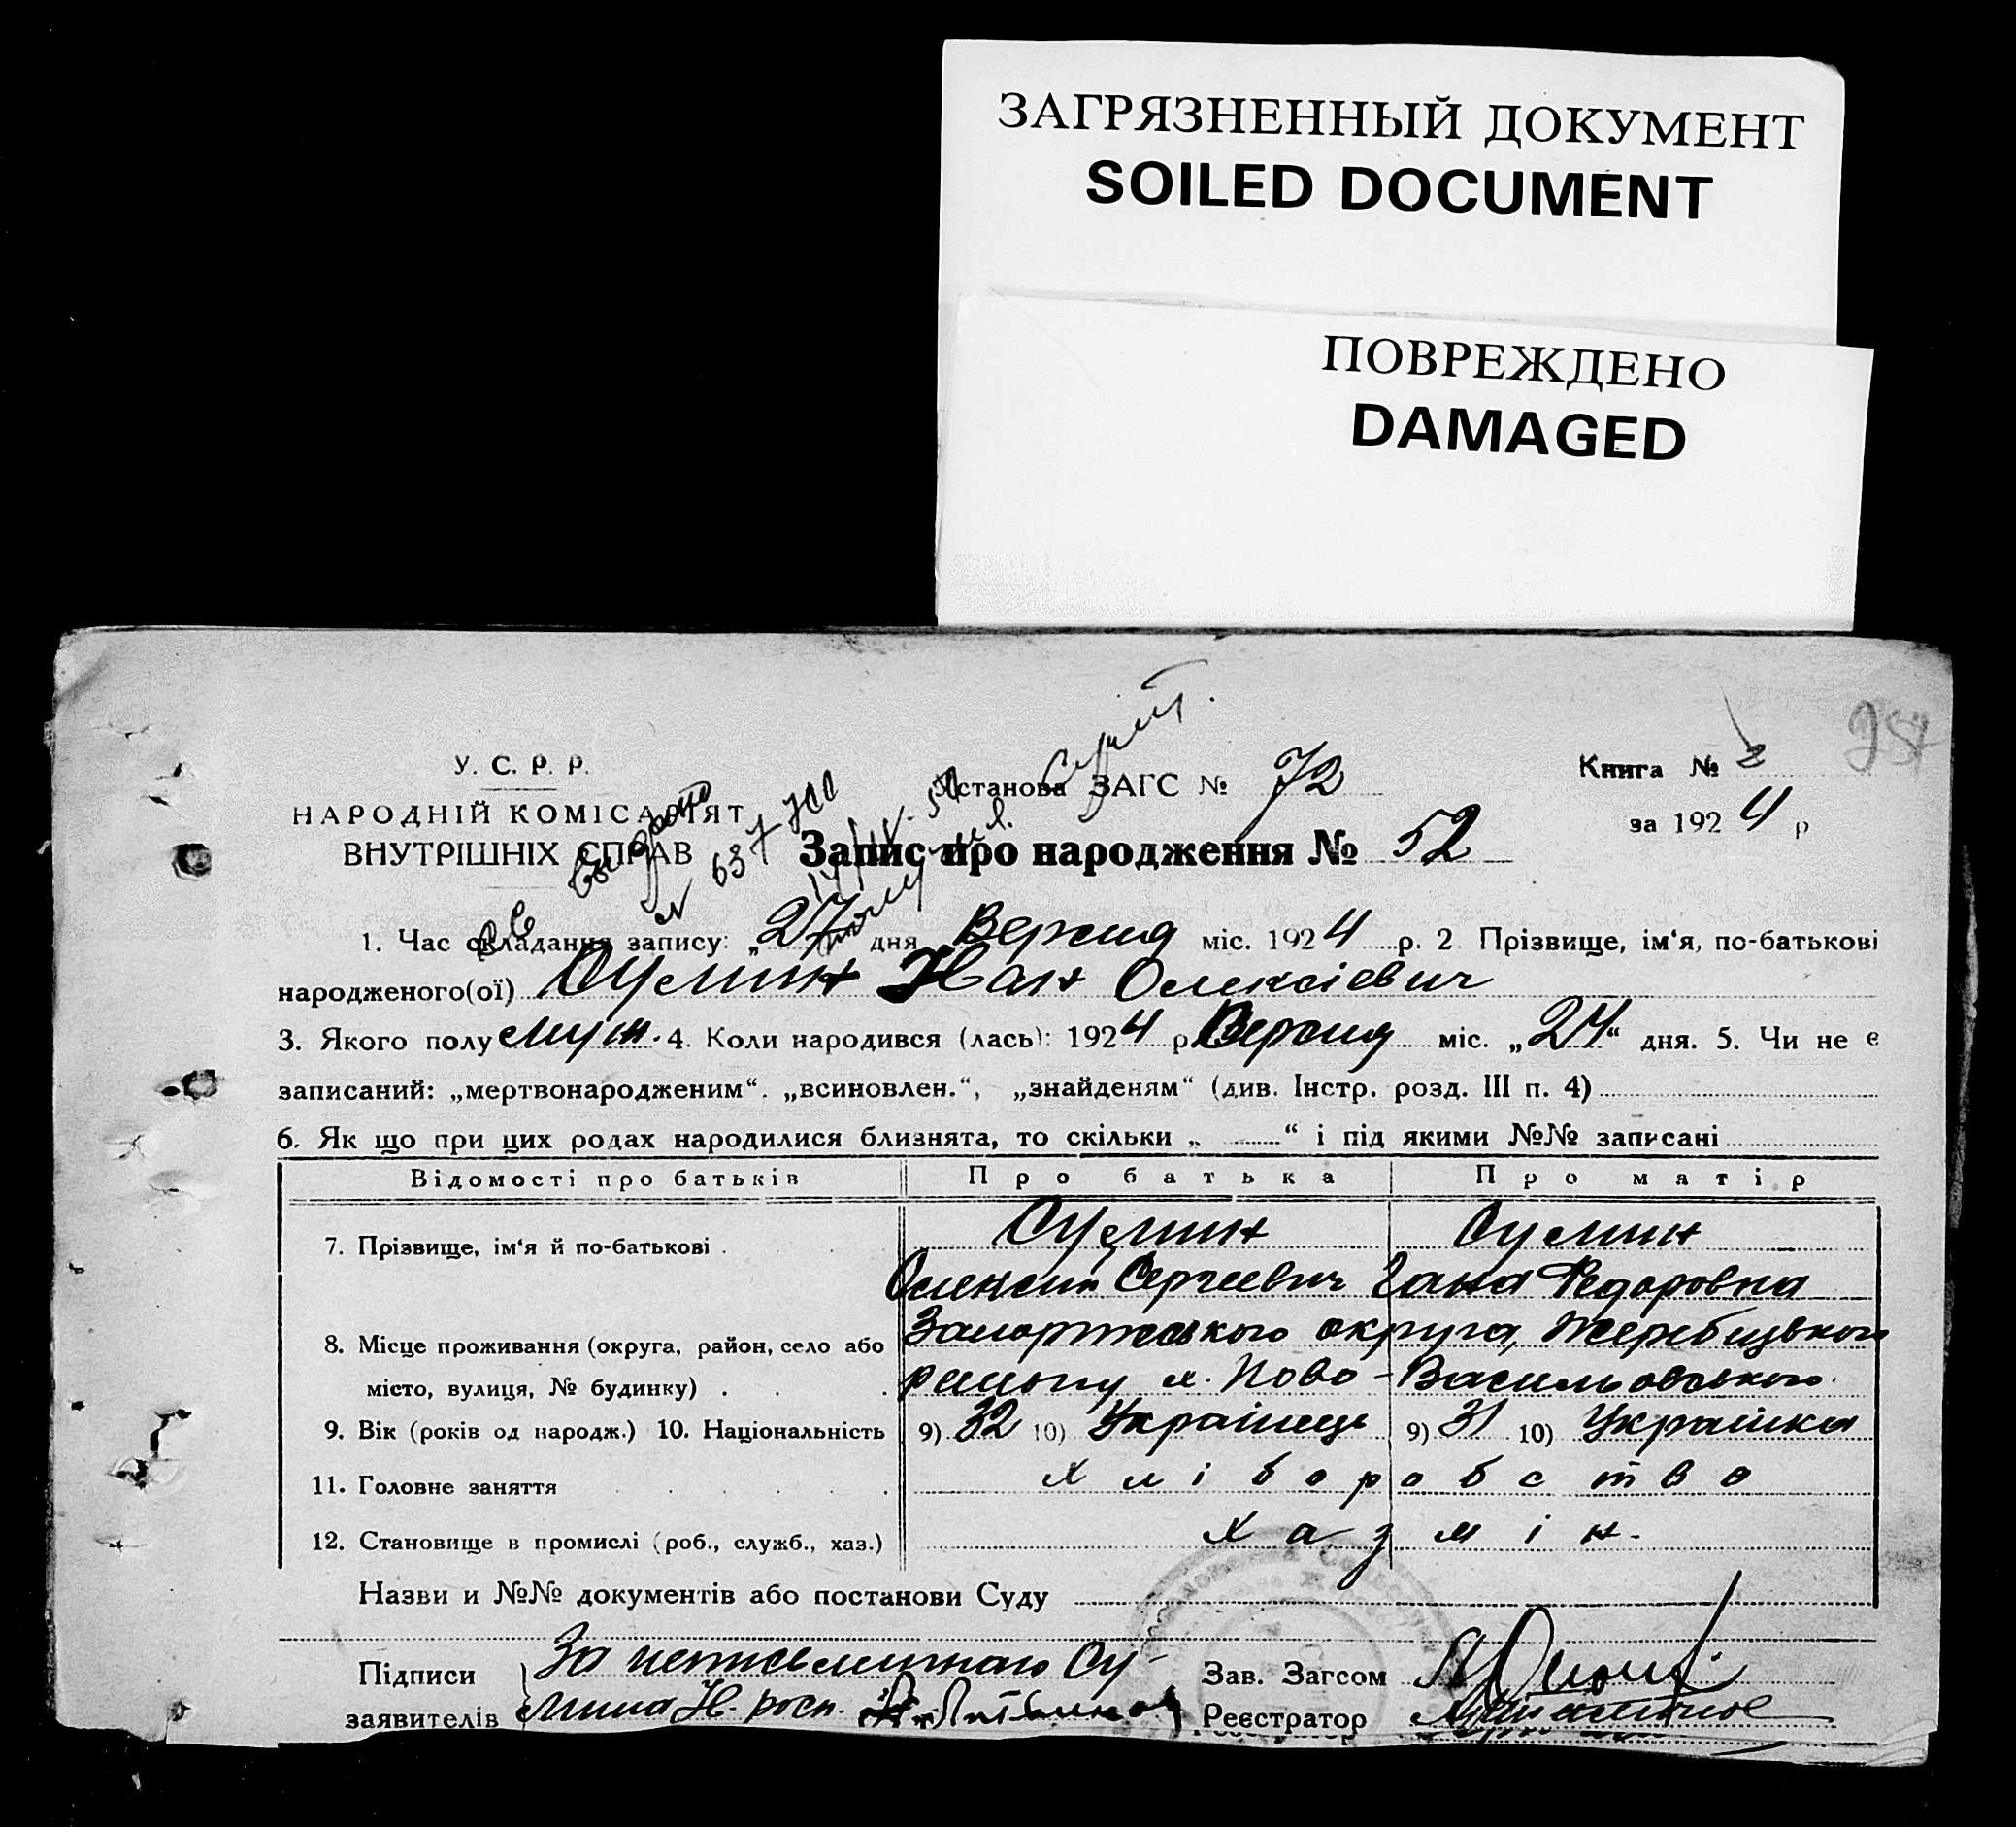 ЗАГРЯЗНЕННЫЙ ДОКУМЕНТ
SOILED DOCUMENT
ПОВРЕЖДЕНО
DAMAGED
У. С. Р. Р.
НАРОДНІЙ КОМІСАРІЯТ
ВНУТРІШНІХ СПРАВ
Установа ЗАГС № 72
Книга № 2
за 1924 р
Запис про народження № 52
1. Час складання запису: „27 дня Вересня міс. 1924 р. 2 Прізвище, ім‘я, по-батькові
народженого(ої) Сулин Іван Олексієвич
3. Якого полу муж. 4. Коли народився (лась): 1924 р. Вересня міс. „24“ дня. 5. Чи не є
записаний: „мертвонародженим“. „всиновлен.“, „знайденям“ (див. Інстр. розд. III п. 4)
6. Як що при цих родах народилися близнята, то скільки „ “ і під якими №№ записані
Відомості про батьків Про батька Про матір
7. Прізвище, ім‘я й по-батькові . Сулин Сулин
Олексій Сергеевич Гана Федоровна
8. Місце проживання (округа, район, село або Запоріжського округа, Жеребецького
місто, вулиця, № будинку) . району х. Ново-Васильовського.
9. Вік (років од народж.) 10. Національність 9) 32 10) Українець 9) 31 10) Українка
11. Головне заняття хлiборобство
12. Становище в промислі (роб., служб., хаз.) хазяїн.
Назви и №№ документів або постанови Суду
Підписи За неписьменного Су-
заявителів лина Н. росп.
Зав. Загсом
Реєстратор